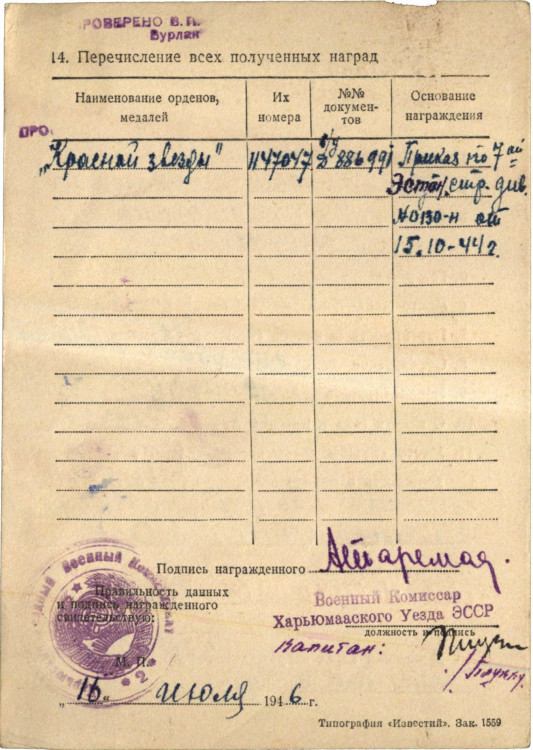 ПРОВЕРЕНО В.П.
Бурлак
14. Перечисление всех полученных наград
Наименование орденов, медалей
Их номера
№№ документов
Основание награждения
ПРО
„Красной звезды" 1147047 Д 886991 Приказ по 7ой
Эстон. стр. див.
№ 0130-н от
15.10-44 г.
Подпись награжденного
Правильность данных
и подпись награжденного
свидетельствую:
Военный Комиссар
Харьюмааского Уезда ЭССР
должность и подпись
капитан:
М. П.
„16" июля 1946 г.
Типография «Известий». Зак. 1559